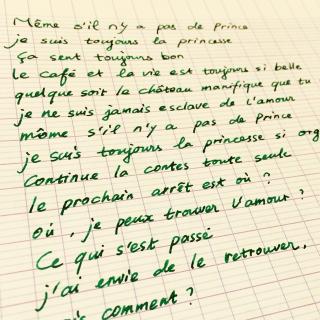 Même s'il n'y a pas de Prince
je suis toujours la princesse
ça sent toujours bon
le café et la vie est toujours si belle
quelque soit le château manifique que tu
je ne suis jamais esclave de l'amour
même s'il n'y a pas de Prince
je suis toujours la princesse si org
Continue la contes toute seule
le prochain arrêt est où ?
où, je peux trouver l'amour ?
Ce qui s'est passé
j'ai envie de le retrouver,
comment ?